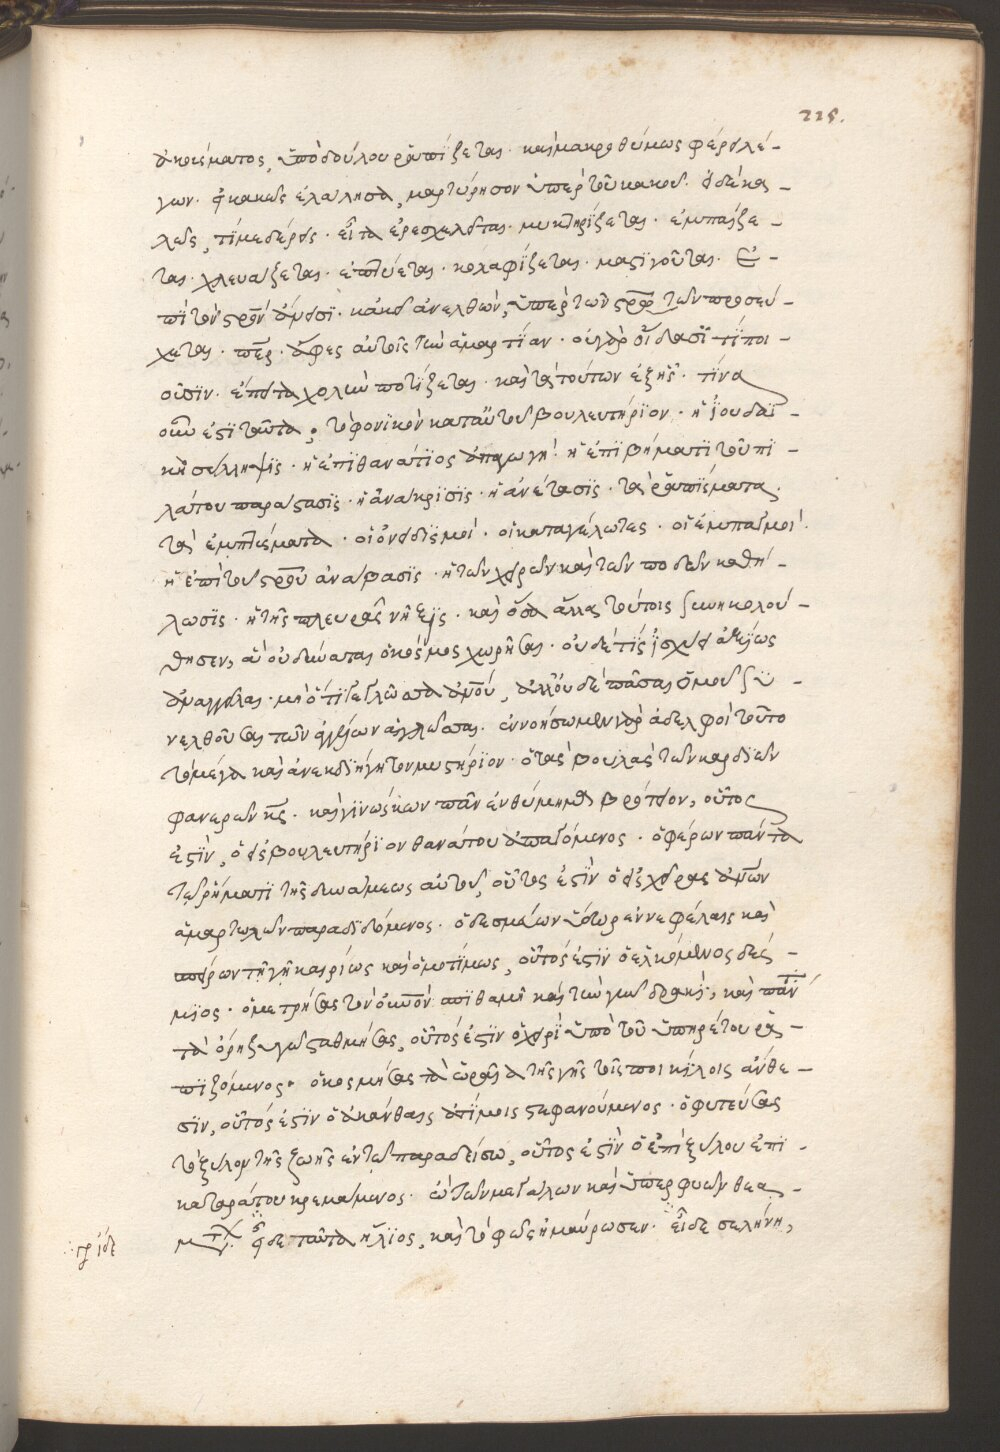 225.
ἀκούσματος, ὑπὸ δούλου ῥαπίζεται· καὶ μακροθύμως φέρει λέ-
γων· εἰ κακῶς ἐλάλησα, μαρτύρησον ὑπὲρ τοῦ κακοῦ· εἰ δὲ κα-
λῶς, τί με δέρεις· εἶτα ἐρεσχελεῖται· μυκτηρίζεται· ἐμπαίζε-
ται· χλευάζεται· ἐμπτύεται· κολαφίζεται· μαστιγοῦται· ἐ-
πὶ τὸν σταυρὸν ἄνεισι· κἀκεῖ ἀνελθών, ὑπὲρ τῶν σταυρωσάντων προσεύ-
χεται· πάτερ· ἄφες αὐτοῖς τὴν ἁμαρτίαν· οὐ γὰρ οἴδασι τί ποι-
οῦσιν· ἔπειτα χολὴν ποτίζεται· καὶ τὰ τούτων ἑξῆς· τίνα
οὖν ἐστι ταῦτα; τὸ φονικὸν κατ' αὐτοῦ βουλευτήριον· ἡ ἰουδαϊ-
κὴ σύλληψις· ἡ ἐπιθανάτιος ἀπαγωγή· ἡ ἐπὶ βήματι τοῦ πι-
λάτου παράστασις· ἡ ἀνάκρισις· ἡ ἀνέτασις· τὰ ῥαπίσματα·
τὰ ἐμπτύσματα· οἱ ὀνειδισμοί· οἱ καταγέλωτες· οἱ ἐμπαιγμοί·
ἡ ἐπὶ τοῦ σταυροῦ ἀνάβασις· ἡ τῶν χειρῶν καὶ τῶν ποδῶν καθή-
λωσις· ἡ τῆς πλευρᾶς νῆξις· καὶ ὅσα ἄλλα τούτοις συνηκολού-
θησεν, ἃ οὐ δύναται ὁ κόσμος χωρῆσαι· οὐδέ τις ἰσχύει ἀξίως
ἀναγγεῖλαι· μὴ ὅτι γε γλῶσσα ἀνθρώπου, ἀλλ' οὐδὲ πᾶσαι ὁμοῦ συ-
νελθοῦσαι τῶν ἀγγέλων αἱ γλῶσσαι· ἐννοήσωμεν γὰρ ἀδελφοὶ τοῦτο
τὸ μέγα καὶ ἀνεκδιήγητον μυστήριον· ὁ τὰς βουλὰς τῶν καρδιῶν
φανερῶν κύριος· καὶ γινώσκων πᾶν ἐνθύμημα βρότειον, οὗτός
ἐστιν, ὁ εἰς βουλευτήριον θανάτου ἀπαγόμενος· ὁ φέρων πάντα
τῷ ῥήματι τῆς δυνάμεως αὐτοῦ, οὗτός ἐστιν ὁ εἰς χεῖρας ἀνθρώπων
ἁμαρτωλῶν παραδιδόμενος· ὁ δεσμεύων ὕδωρ ἐν νεφέλαις καὶ
σπείρων τῇ γῇ καιρίως καὶ ὁμοτίμως, οὗτός ἐστιν ὁ ἑλκόμενος δέσ-
μιος· ὁ μετρήσας τὸν οὐρανὸν σπιθαμῇ καὶ τὴν γῆν δρακί, καὶ πάντα
τὰ ὄρη ζυγῷ σταθμήσας, οὗτός ἐστιν ὁ χειρὶ ὑπὸ τοῦ ὑπηρέτου ῥα-
πιζόμενος· ὁ κοσμήσας τὰ ὡραῖα τῆς γῆς τοῖς ποικίλοις ἄνθε-
σιν, οὗτός ἐστιν ὁ ἀκάνθαις ἀτίμοις στεφανούμενος· ὁ φυτεύσας
τὸ ξύλον τῆς ζωῆς ἐν τῷ παραδείσῳ, οὗτός ἐστιν ὁ ἐπὶ ξύλου ἐπι-
καταράτου κρεμάμενος· ὢ τῶν μεγάλων καὶ ὑπερφυῶν θεα-
μάτων. εἶδε ταῦτα ἥλιος, καὶ τὸ φῶς ἠμαύρωσεν· εἶδε σελήνη,
ἴδε